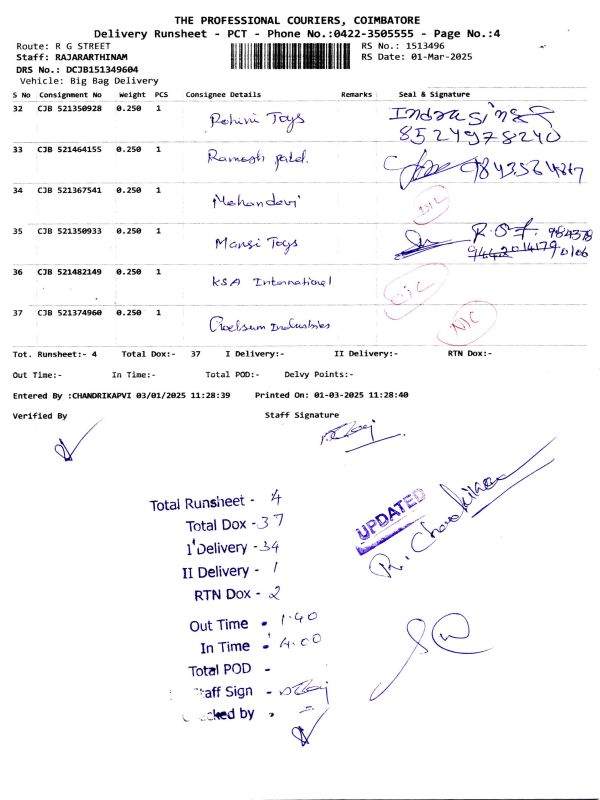 THE PROFESSIONAL COURIERS, COIMBATORE
Delivery Runsheet - PCT - Phone No.:0422-3505555 - Page No.:4
Route: R G STREET RS No.: 1513496
Staff: RAJARARTHINAM RS Date: 01-Mar-2025
DRS No.: DCJB151349604
Vehicle: Big Bag Delivery
S No Consignment No Weight PCS Consignee Details Remarks Seal & Signature
32 CJB 521350928 0.250 1 Rohini Toys Indra Singh
8524978240
33 CJB 521464155 0.250 1 Ramesh patel.
34 CJB 521367541 0.250 1 Mohandevi
35 CJB 521350933 0.250 1 Mansi Toys
36 CJB 521482149 0.250 1 KSA International
37 CJB 521374960 0.250 1 Industries N/C
Tot. Runsheet:- 4 Total Dox:- 37 I Delivery:- II Delivery:- RTN Dox:-
Out Time:- In Time:- Total POD:- Delvy Points:-
Entered By :CHANDRIKAPVI 03/01/2025 11:28:39 Printed On: 01-03-2025 11:28:40
Verified By Staff Signature
Total Runsheet - 4
Total Dox - 37
I Delivery - 34
II Delivery - 1
RTN Dox - 2
UPDATED
Out Time - 1.40
In Time - 4.00
Total POD -
Staff Sign -